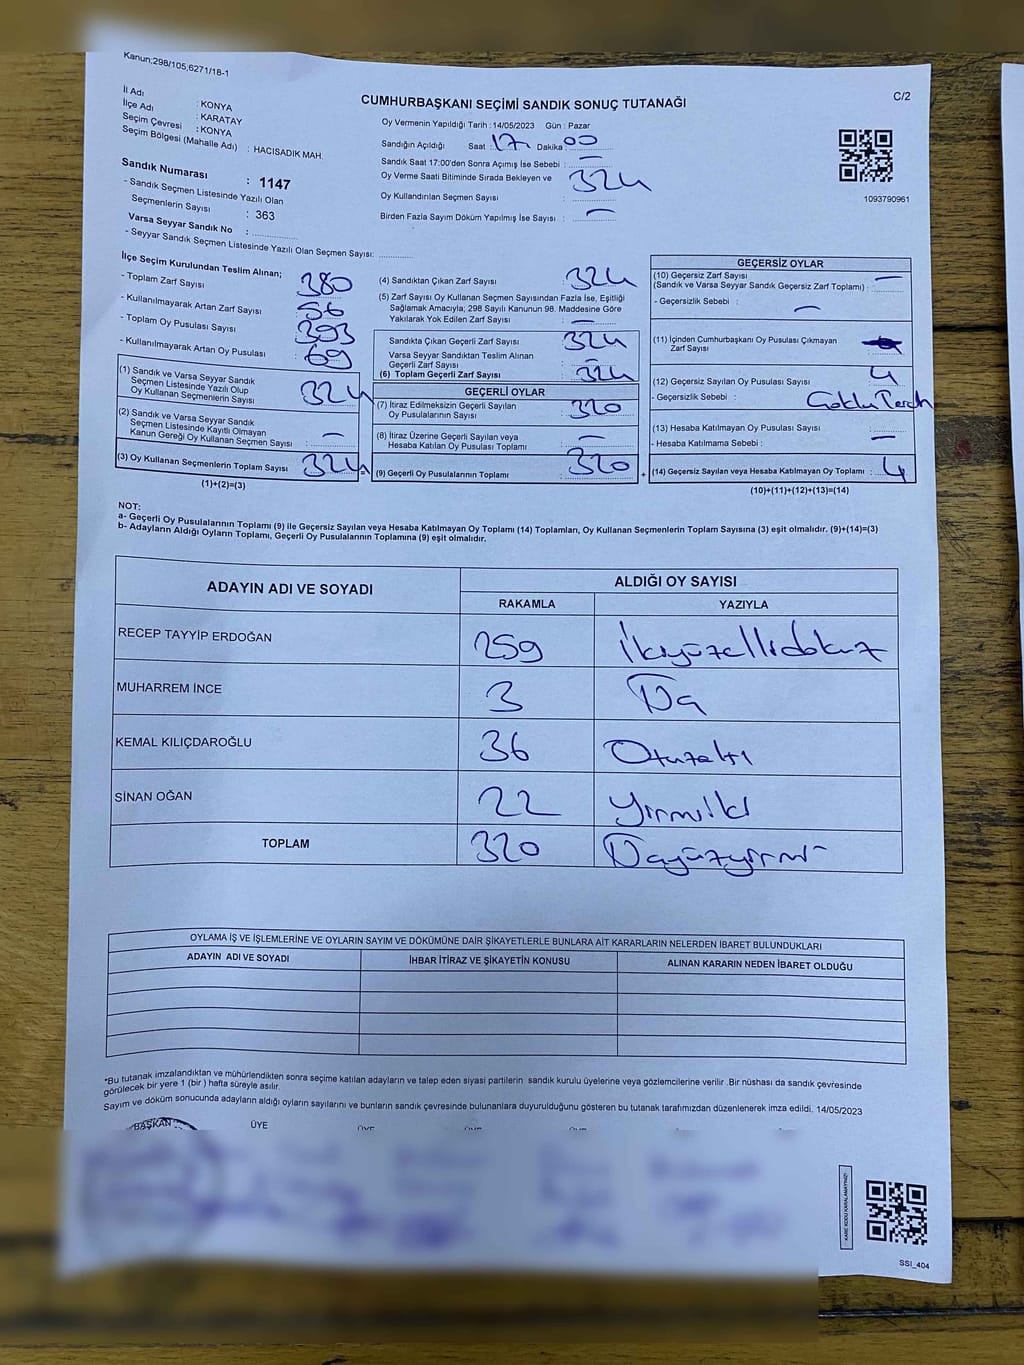 Kanun;298/105,6271/18-1
C/2
CUMHURBAŞKANI SEÇİMİ SANDIK SONUÇ TUTANAĞI
İl Adı : KONYA
İlçe Adı : KARATAY
Seçim Çevresi : KONYA
Seçim Bölgesi (Mahalle Adı) : HACISADIK MAH.
Sandık Numarası : 1147
- Sandık Seçmen Listesinde Yazılı Olan
Seçmenlerin Sayısı : 363
Varsa Seyyar Sandık No :
- Seyyar Sandık Seçmen Listesinde Yazılı Olan Seçmen Sayısı:
Oy Vermenin Yapıldığı Tarih : 14/05/2023 Gün : Pazar
Sandığın Açıldığı Saat : 17 Dakika : 00
Sandık Saat 17:00'den Sonra Açımış İse Sebebi : —
Oy Verme Saati Bitiminde Sırada Bekleyen ve
Oy Kullandırılan Seçmen Sayısı : 324
Birden Fazla Sayım Döküm Yapılmış İse Sayısı : —
1093790961
İlçe Seçim Kurulundan Teslim Alınan;
- Toplam Zarf Sayısı : 380
- Kullanılmayarak Artan Zarf Sayısı : 56
- Toplam Oy Pusulası Sayısı : 393
- Kullanılmayarak Artan Oy Pusulası : 69
(1) Sandık ve Varsa Seyyar Sandık
Seçmen Listesinde Yazılı Olup
Oy Kullanan Seçmenlerin Sayısı : 324
(2) Sandık ve Varsa Seyyar Sandık
Seçmen Listesinde Kayıtlı Olmayan
Kanun Gereği Oy Kullanan Seçmen Sayısı : —
(3) Oy Kullanan Seçmenlerin Toplam Sayısı : 324
(1)+(2)=(3)
=
(4) Sandıktan Çıkan Zarf Sayısı : 324
(5) Zarf Sayısı Oy Kullanan Seçmen Sayısından Fazla İse, Eşitliği
Sağlamak Amacıyla; 298 Sayılı Kanunun 98. Maddesine Göre
Yakılarak Yok Edilen Zarf Sayısı : —
Sandıkta Çıkan Geçerli Zarf Sayısı : 324
Varsa Seyyar Sandıktan Teslim Alınan
Geçerli Zarf Sayısı : —
(6) Toplam Geçerli Zarf Sayısı : 324
GEÇERLİ OYLAR
(7) İtiraz Edilmeksizin Geçerli Sayılan
Oy Pusulalarının Sayısı : 320
(8) İtiraz Üzerine Geçerli Sayılan veya
Hesaba Katılan Oy Pusulası Toplamı : —
(9) Geçerli Oy Pusulalarının Toplamı : 320
+
GEÇERSİZ OYLAR
(10) Geçersiz Zarf Sayısı
(Sandık ve Varsa Seyyar Sandık Geçersiz Zarf Toplamı) : —
- Geçersizlik Sebebi : —
(11) İçinden Cumhurbaşkanı Oy Pusulası Çıkmayan
Zarf Sayısı :
(12) Geçersiz Sayılan Oy Pusulası Sayısı : 4
- Geçersizlik Sebebi :
(13) Hesaba Katılmayan Oy Pusulası Sayısı :
- Hesaba Katılmama Sebebi : —
(14) Geçersiz Sayılan veya Hesaba Katılmayan Oy Toplamı : 4
(10)+(11)+(12)+(13)=(14)
NOT:
a- Geçerli Oy Pusulalarının Toplamı (9) ile Geçersiz Sayılan veya Hesaba Katılmayan Oy Toplamı (14) Toplamları, Oy Kullanan Seçmenlerin Toplam Sayısına (3) eşit olmalıdır. (9)+(14)=(3)
b- Adayların Aldığı Oyların Toplamı, Geçerli Oy Pusulalarının Toplamına (9) eşit olmalıdır.
ADAYIN ADI VE SOYADI ALDIĞI OY SAYISI
RAKAMLA YAZIYLA
RECEP TAYYİP ERDOĞAN 259 İkiyüzellidokuz
MUHARREM İNCE 3 Üç
KEMAL KILIÇDAROĞLU 36 Otuzaltı
SİNAN OĞAN 22 Yirmiiki
TOPLAM 320 Üçyüzyirmi
OYLAMA İŞ VE İŞLEMLERİNE VE OYLARIN SAYIM VE DÖKÜMÜNE DAİR ŞİKAYETLERLE BUNLARA AİT KARARLARIN NELERDEN İBARET BULUNDUKLARI
ADAYIN ADI VE SOYADI İHBAR İTİRAZ VE ŞİKAYETİN KONUSU ALINAN KARARIN NEDEN İBARET OLDUĞU
*Bu tutanak imzalandıktan ve mühürlendikten sonra seçime katılan adayların ve talep eden siyasi partilerin sandık kurulu üyelerine veya gözlemcilerine verilir .Bir nüshası da sandık çevresinde
görülecek bir yere 1 (bir ) hafta süreyle asılır.
Sayım ve döküm sonucunda adayların aldığı oyların sayılarını ve bunların sandık çevresinde bulunanlara duyurulduğunu gösteren bu tutanak tarafımızdan düzenlenerek imza edildi. 14/05/2023
BAŞKAN ÜYE ÜYE ÜYE ÜYE
KARE KODU KARALAMAYINIZ!
SSI_404